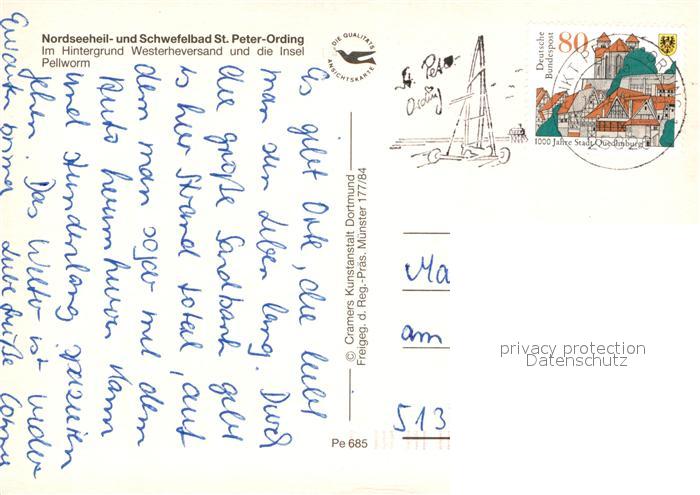 Nordseeheil- und Schwefelbad St. Peter-Ording
Im Hintergrund Westerheversand und die Insel
Pellworm
DIE QUALITÄTS
ANSICHTSKARTE
St. Peter-
Ording
Deutsche
Bundespost
80
1000 Jahre Stadt Quedlinburg
Es gibt Orte, die liebt
man sein Leben lang. Durch
die große Sandbank gibt
es hier Strand total, auf
dem man sogar mit dem
Auto herumfahren kann
und stundenlang spazieren
gehen. Das Wetter ist wieder
Erwarten prima. Liebe Grüße
© Cramers Kunstanstalt Dortmund
Freigeg. d. Reg.-Präs. Münster 177/84
Pe 685
Ma
am
513
privacy protection
Datenschutz